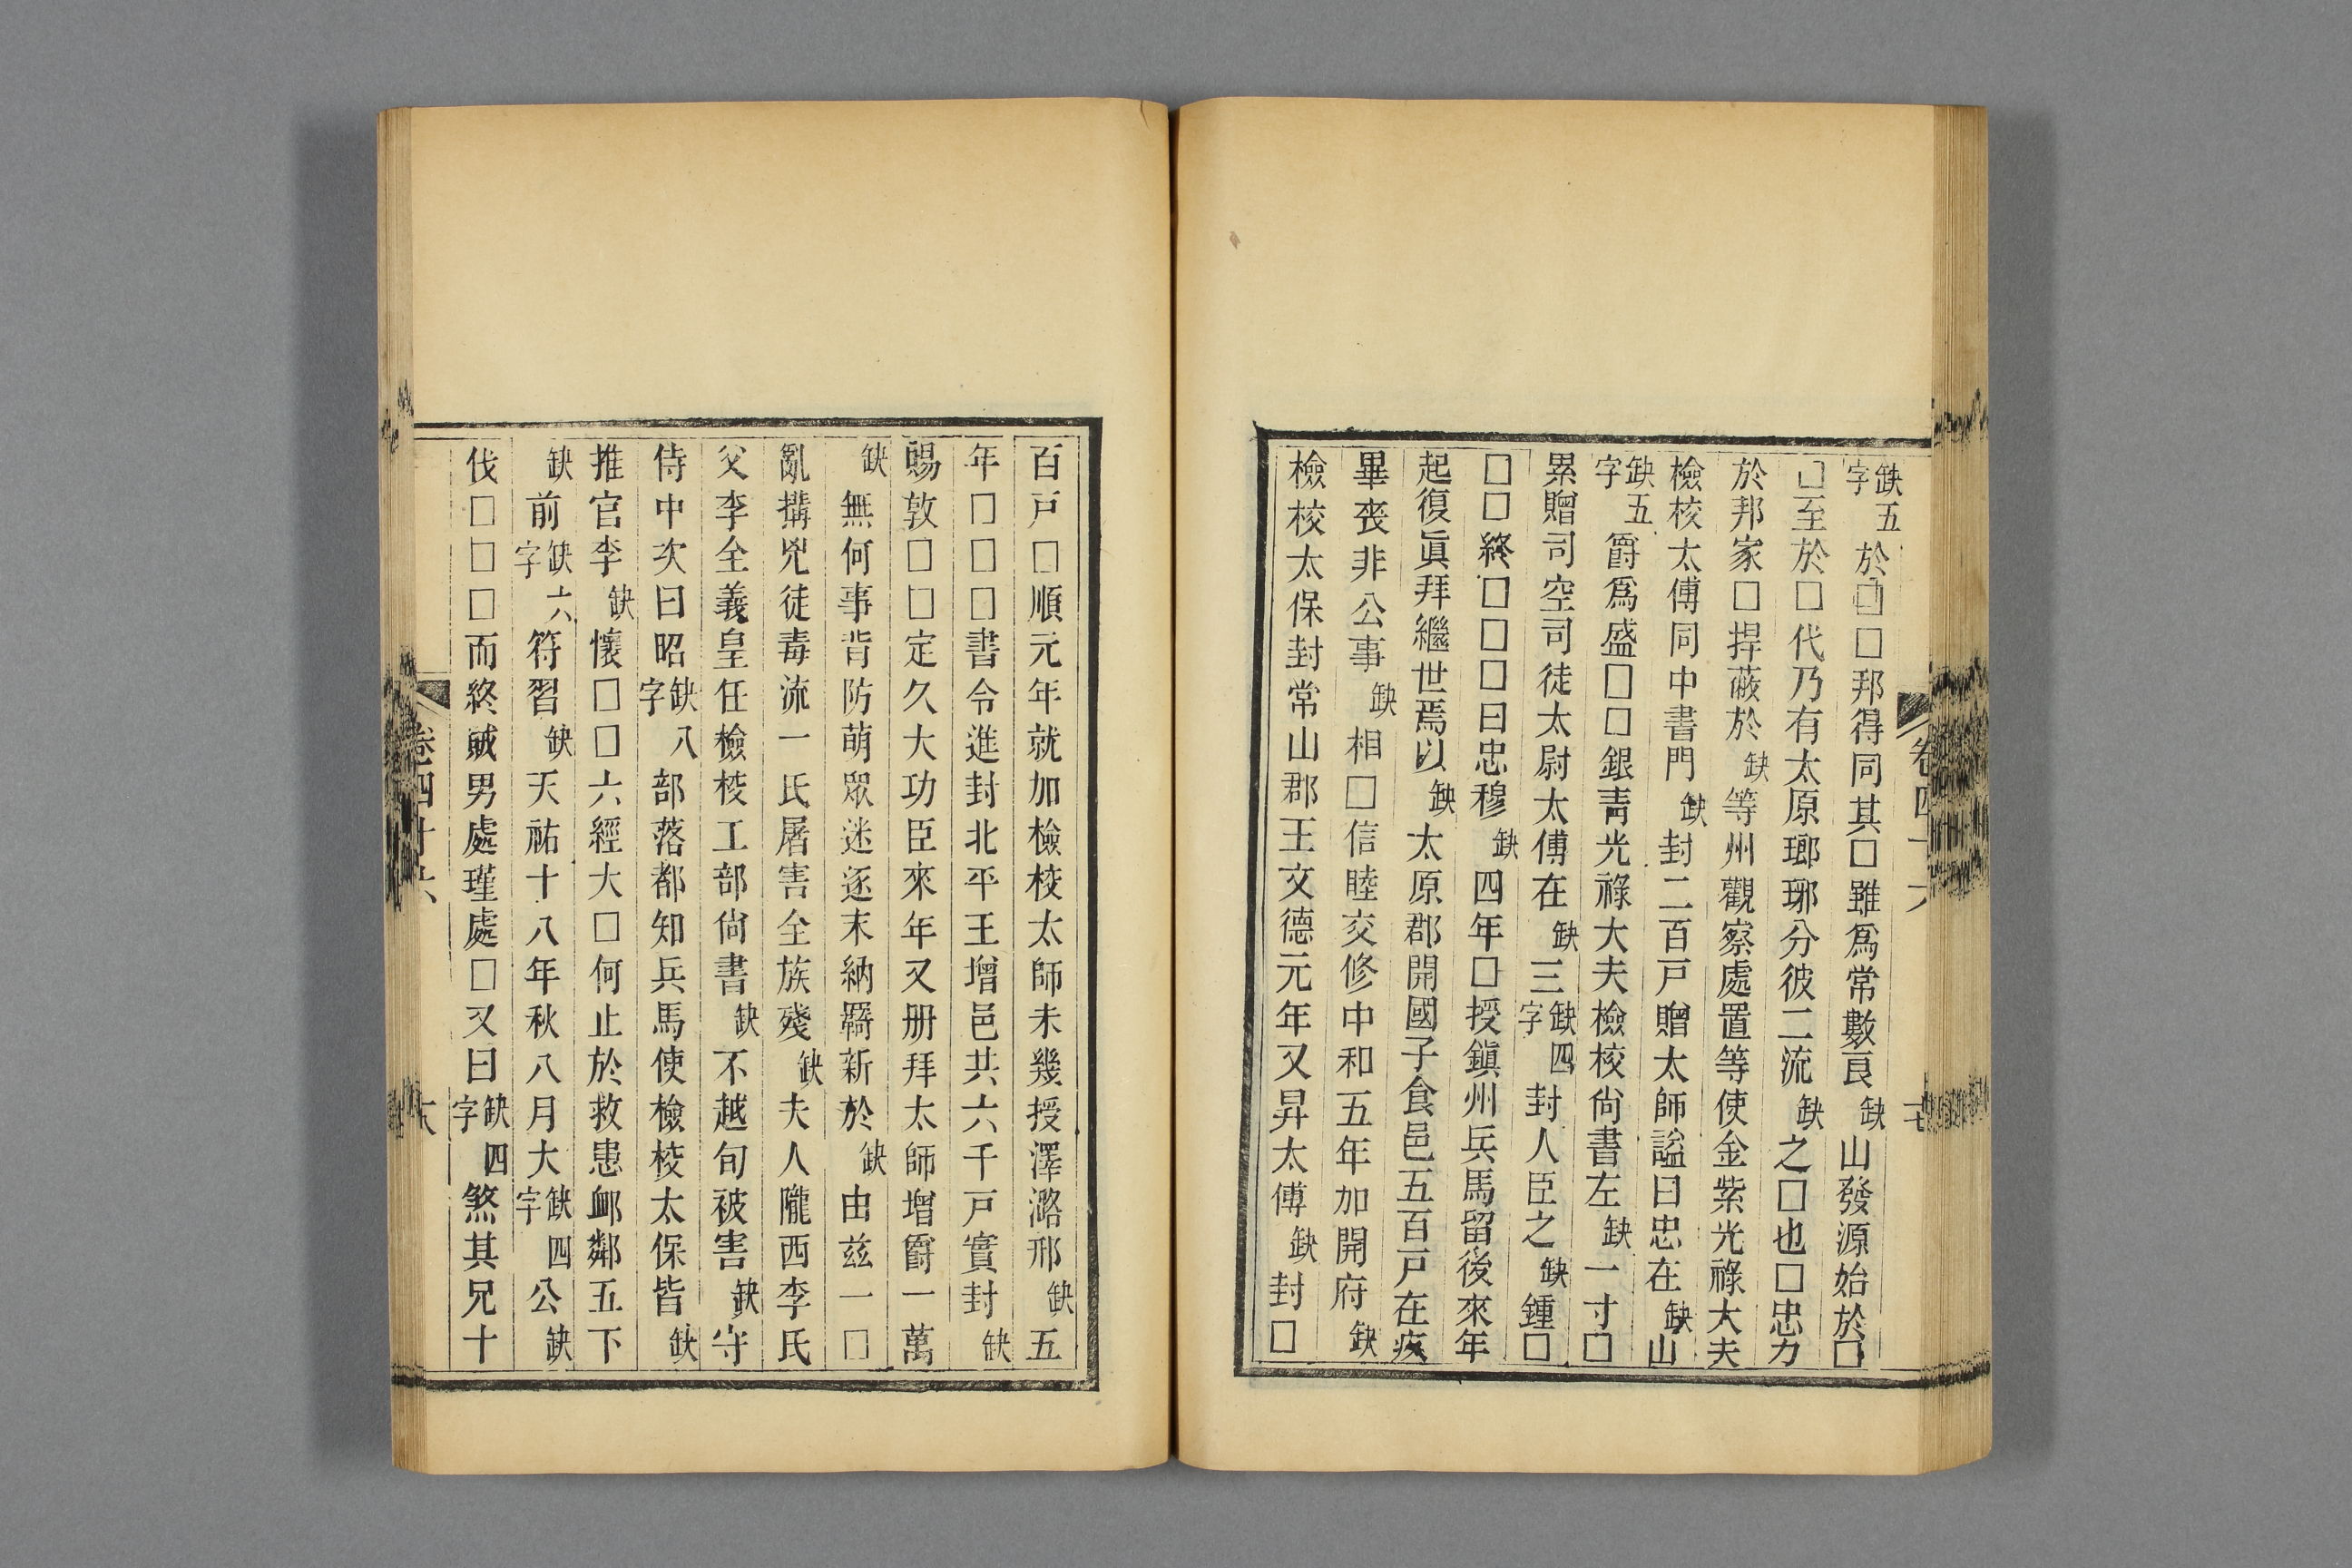 缺五字於□□邦得同其□雖爲常數良缺山發源始於□
□至於□代乃有太原瑯琊分彼二流缺之□也□忠力
於邦家□捍蔽於缺等州觀察處置等使金紫光祿大夫
檢校太傅同中書門缺封二百戸贈太師謚曰忠在缺山
缺五字爵爲盛□□銀靑光祿大夫檢校尙書左缺一寸□
累贈司空司徒太尉太傅在缺三缺四字封人臣之缺鍾□
□□終□□□曰忠穆缺四年□授鎭州兵馬留後來年
起復眞拜繼世焉以缺太原郡開國子食邑五百戸在疚
畢喪非公事缺相□信睦交修中和五年加開府缺
檢校太保封常山郡王文德元年又昇太傅缺封□
卷四十六
十七
百戸□順元年就加檢校太師未幾授澤潞邢缺五
年□□□書令進封北平王增邑共六千戸實封缺
賜敦□□定久大功臣來年又册拜太師增爵一萬
缺無何事背防萌眾迷逐末納羇新於缺由兹一□
亂搆兇徒毒流一氏屠害全族殘缺夫人隴西李氏
父李全義皇任檢校工部尙書缺不越旬被害缺守
侍中次曰昭缺八字部落都知兵馬使檢校太保皆缺
推官李缺懷□□六經大□何止於救患卹鄰五下
缺前缺六字符習缺天祐十八年秋八月大缺四字公缺
伐□□□而終賊男處瑾處□又曰缺四字煞其兄十
卷四十六
十八